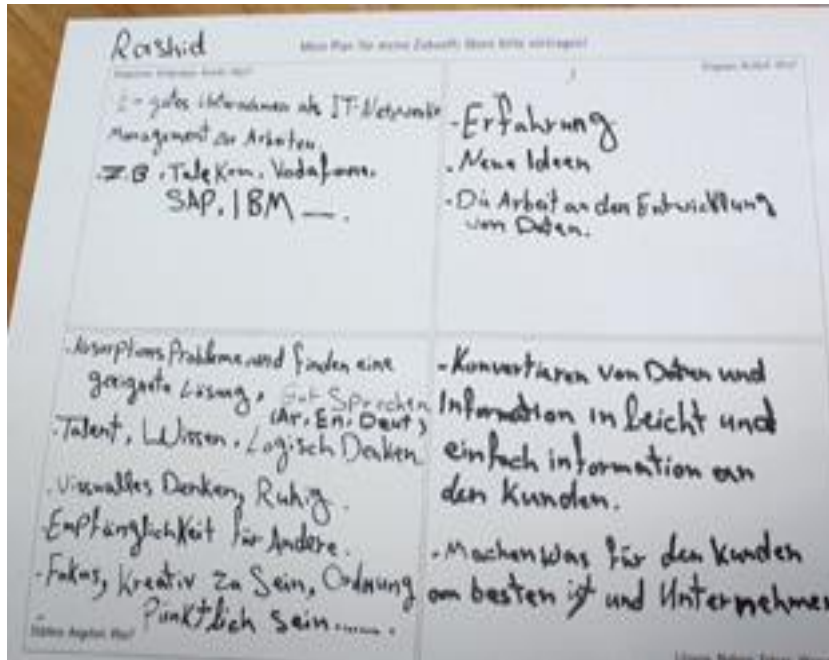 Rashid
Mein Plan für meine Zukunft: (dann bitte eintragen)
gutes Unternehmen als IT-Netzwerk
Management zu Arbeiten.
Z B . Telekom. Vodafone.
SAP. IBM —.
- Erfahrung
. Neue Ideen
- Die Arbeit an den Entwicklung
von Daten.
. Absorptions Probleme und finden eine
geeignete Lösung, Gut Sprechen
(Ar. En. Deut)
. Talent, Wissen. Logisch Denken
. Visualles Denken, Ruhig.
- Empfänglichkeit für Andere.
- Fokus, Kreativ zu Sein, Ordnung
Pünktlich sein......
- Konvertieren von Daten und
Information in leicht und
einfach information an
den Kunden.
- Machen Was für den Kunden
am besten ist und Unternehmen